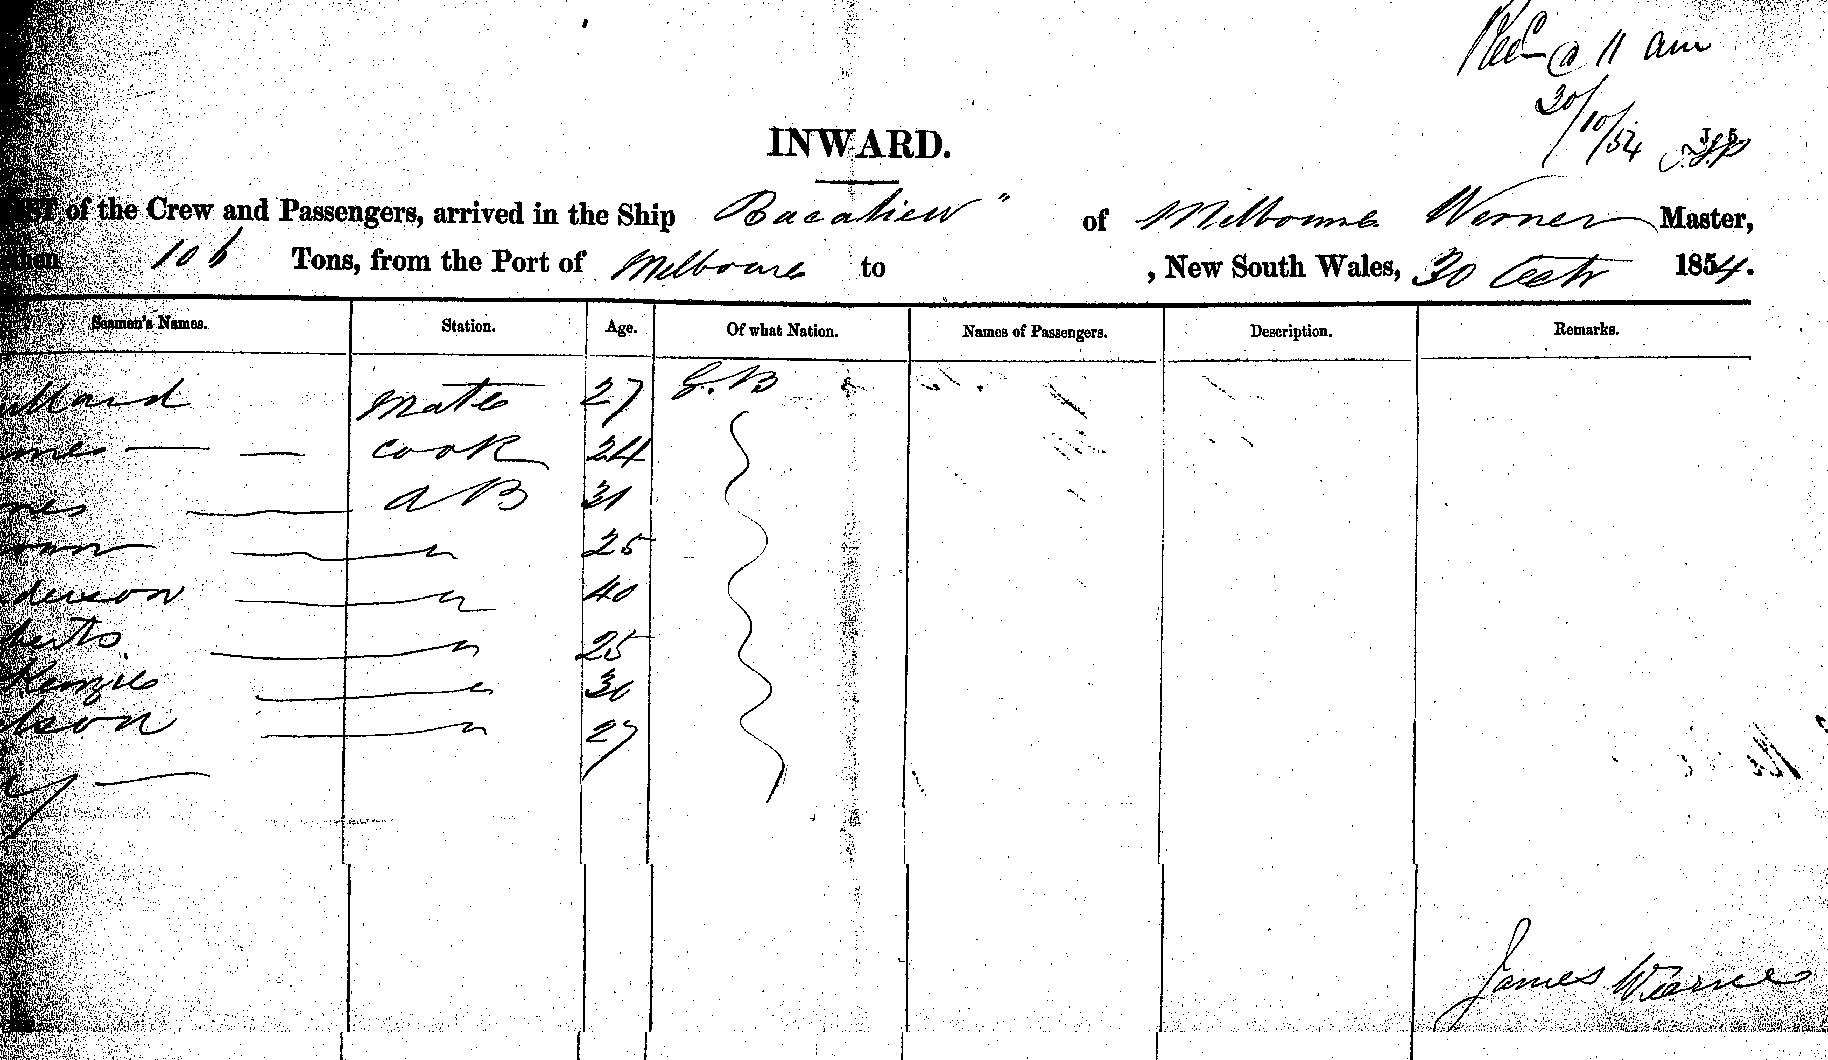 Recd @ 11 am
30/10/54
INWARD.
of the Crew and Passengers, arrived in the Ship Bacalieu" of Melbourne Werner Master,
106 Tons, from the Port of Melbourne to , New South Wales, 30 Octr 1854.
Seamen's Names. Station. Age. Of what Nation. Names of Passengers. Description. Remarks.
Mate 27 G.B
cook 24
A B 31
" 25
derson " 40
berts " 25
Kenzie " 30
lson " 27
James